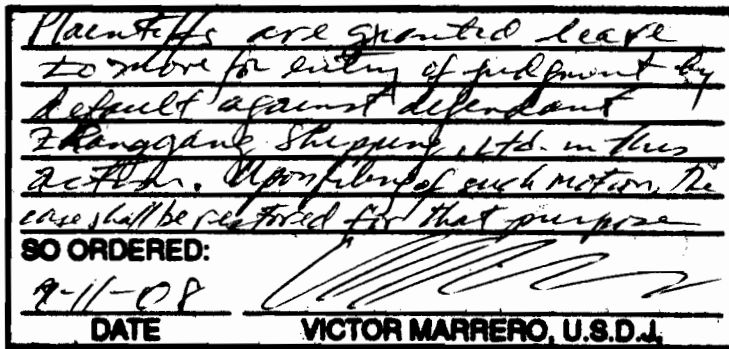 Plaintiffs are granted leave
to move for entry of judgment by
default against defendant
Zhanggang Shipping, Ltd. in this
action. Upon filing of such motion, the
case shall be restored for that purpose
SO ORDERED:
9-11-08
DATE VICTOR MARRERO, U.S.D.J.